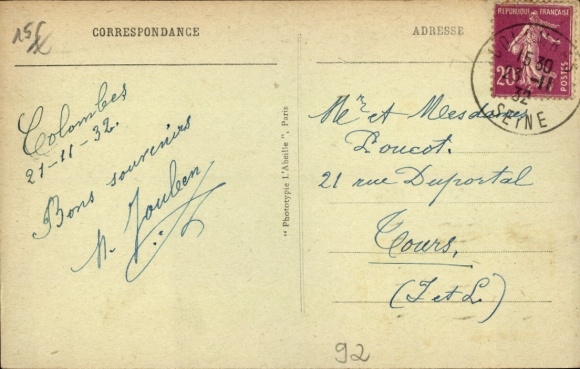 CORRESPONDANCE
Colombes
21-11-32.
Bons souvenirs
"Phototypie L'Abeille", Paris
ADRESSE
REPUBLIQUE FRANÇAISE
20c
POSTES
15 30
-11
32
SEINE
Mr et Mesdames
Loucot.
21 rue Duportal
Tours,
(I et L.)
92